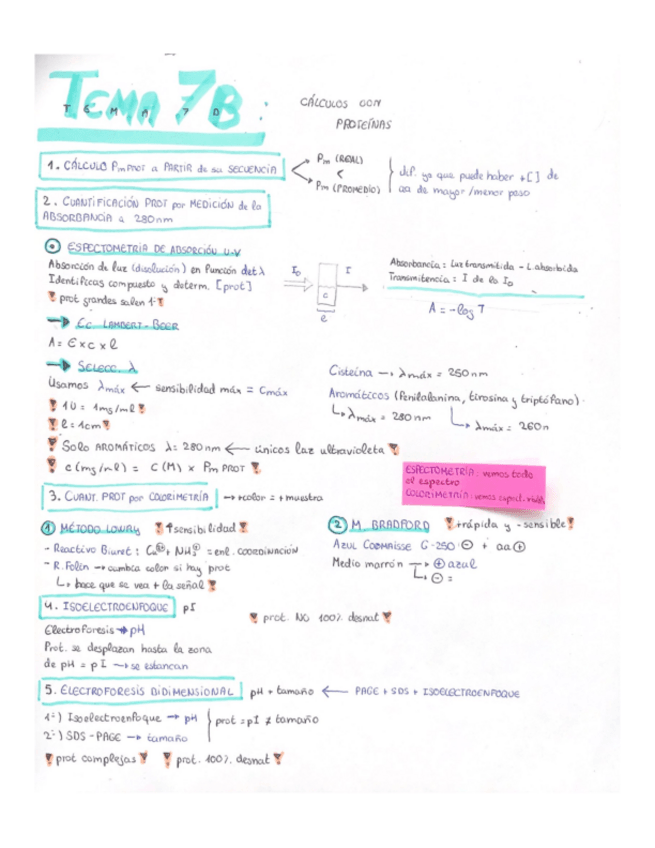 TEMA 7B:
TEMA 7D
CÁLCULOS CON
PROTEÍNAS
1. CÁLCULO Pm PROT a PARTIR de su SECUENCIA
Pm (REAL)
<
Pm (PROMEDIO)
dif. ya que puede haber +[] de
aa de mayor/menor peso
2. CUANTIFICACIÓN PROT por MEDICIÓN de la
ABSORBANCIA a 280nm
ESPECTOMETRÍA DE ABSORCIÓN U.V
Absorción de luz (disolución) en función det λ
Identificas compuesto y determ. [prot]
prot grandes salen 1º
I₀ I
c
e
Absorbancia: Luz transmitida - L absorbida
Transmitencia: I de la I₀
A = -log T
→ Ec LAMBERT-BEER
A = Є x c x l
→ SELECC. λ
Usamos λmáx ← sensibilidad máx = Cmáx
1U = 1mg/ml
l = 1cm
Cisteína → λmáx = 250nm
Aromáticos (fenilalanina, tirosina y triptófano)
↳ λmáx = 280nm
↳ λmáx = 260n
Solo AROMÁTICOS λ= 280nm ← únicos luz ultravioleta
c (mg/ml) = C (M) x Pm PROT
ESPECTOMETRÍA: vemos todo
el espectro
COLORIMETRÍA: vemos espect. visible
3. CUANT. PROT por COLORIMETRÍA → +color = +muestra
1 MÉTODO LOWRY ↑sensibilidad
- Reactivo Biuret: Cu + NH = enl. COORDINACIÓN
- R. Folin → cambia color si hay prot
↳ hace que se vea + la señal
2 M. BRADFORD +rápida y -sensible
AZUL COOMAISSE G-250 ⊖ + aa ⊕
Medio marrón → ⊕ azul
↳ ⊖ =
4. ISOELECTROENFOQUE pI
prot. NO 100% desnat
Electroforesis → pH
Prot. se desplazan hasta la zona
de pH = pI → se estancan
5. ELECTROFORESIS BIDIMENSIONAL pH + tamaño ← PAGE + SDS + ISOELECTROENFOQUE
1º) Isoelectroenfoque → pH
2º) SDS-PAGE → tamaño
prot = pI ≠ tamaño
prot complejas prot. 100% desnat